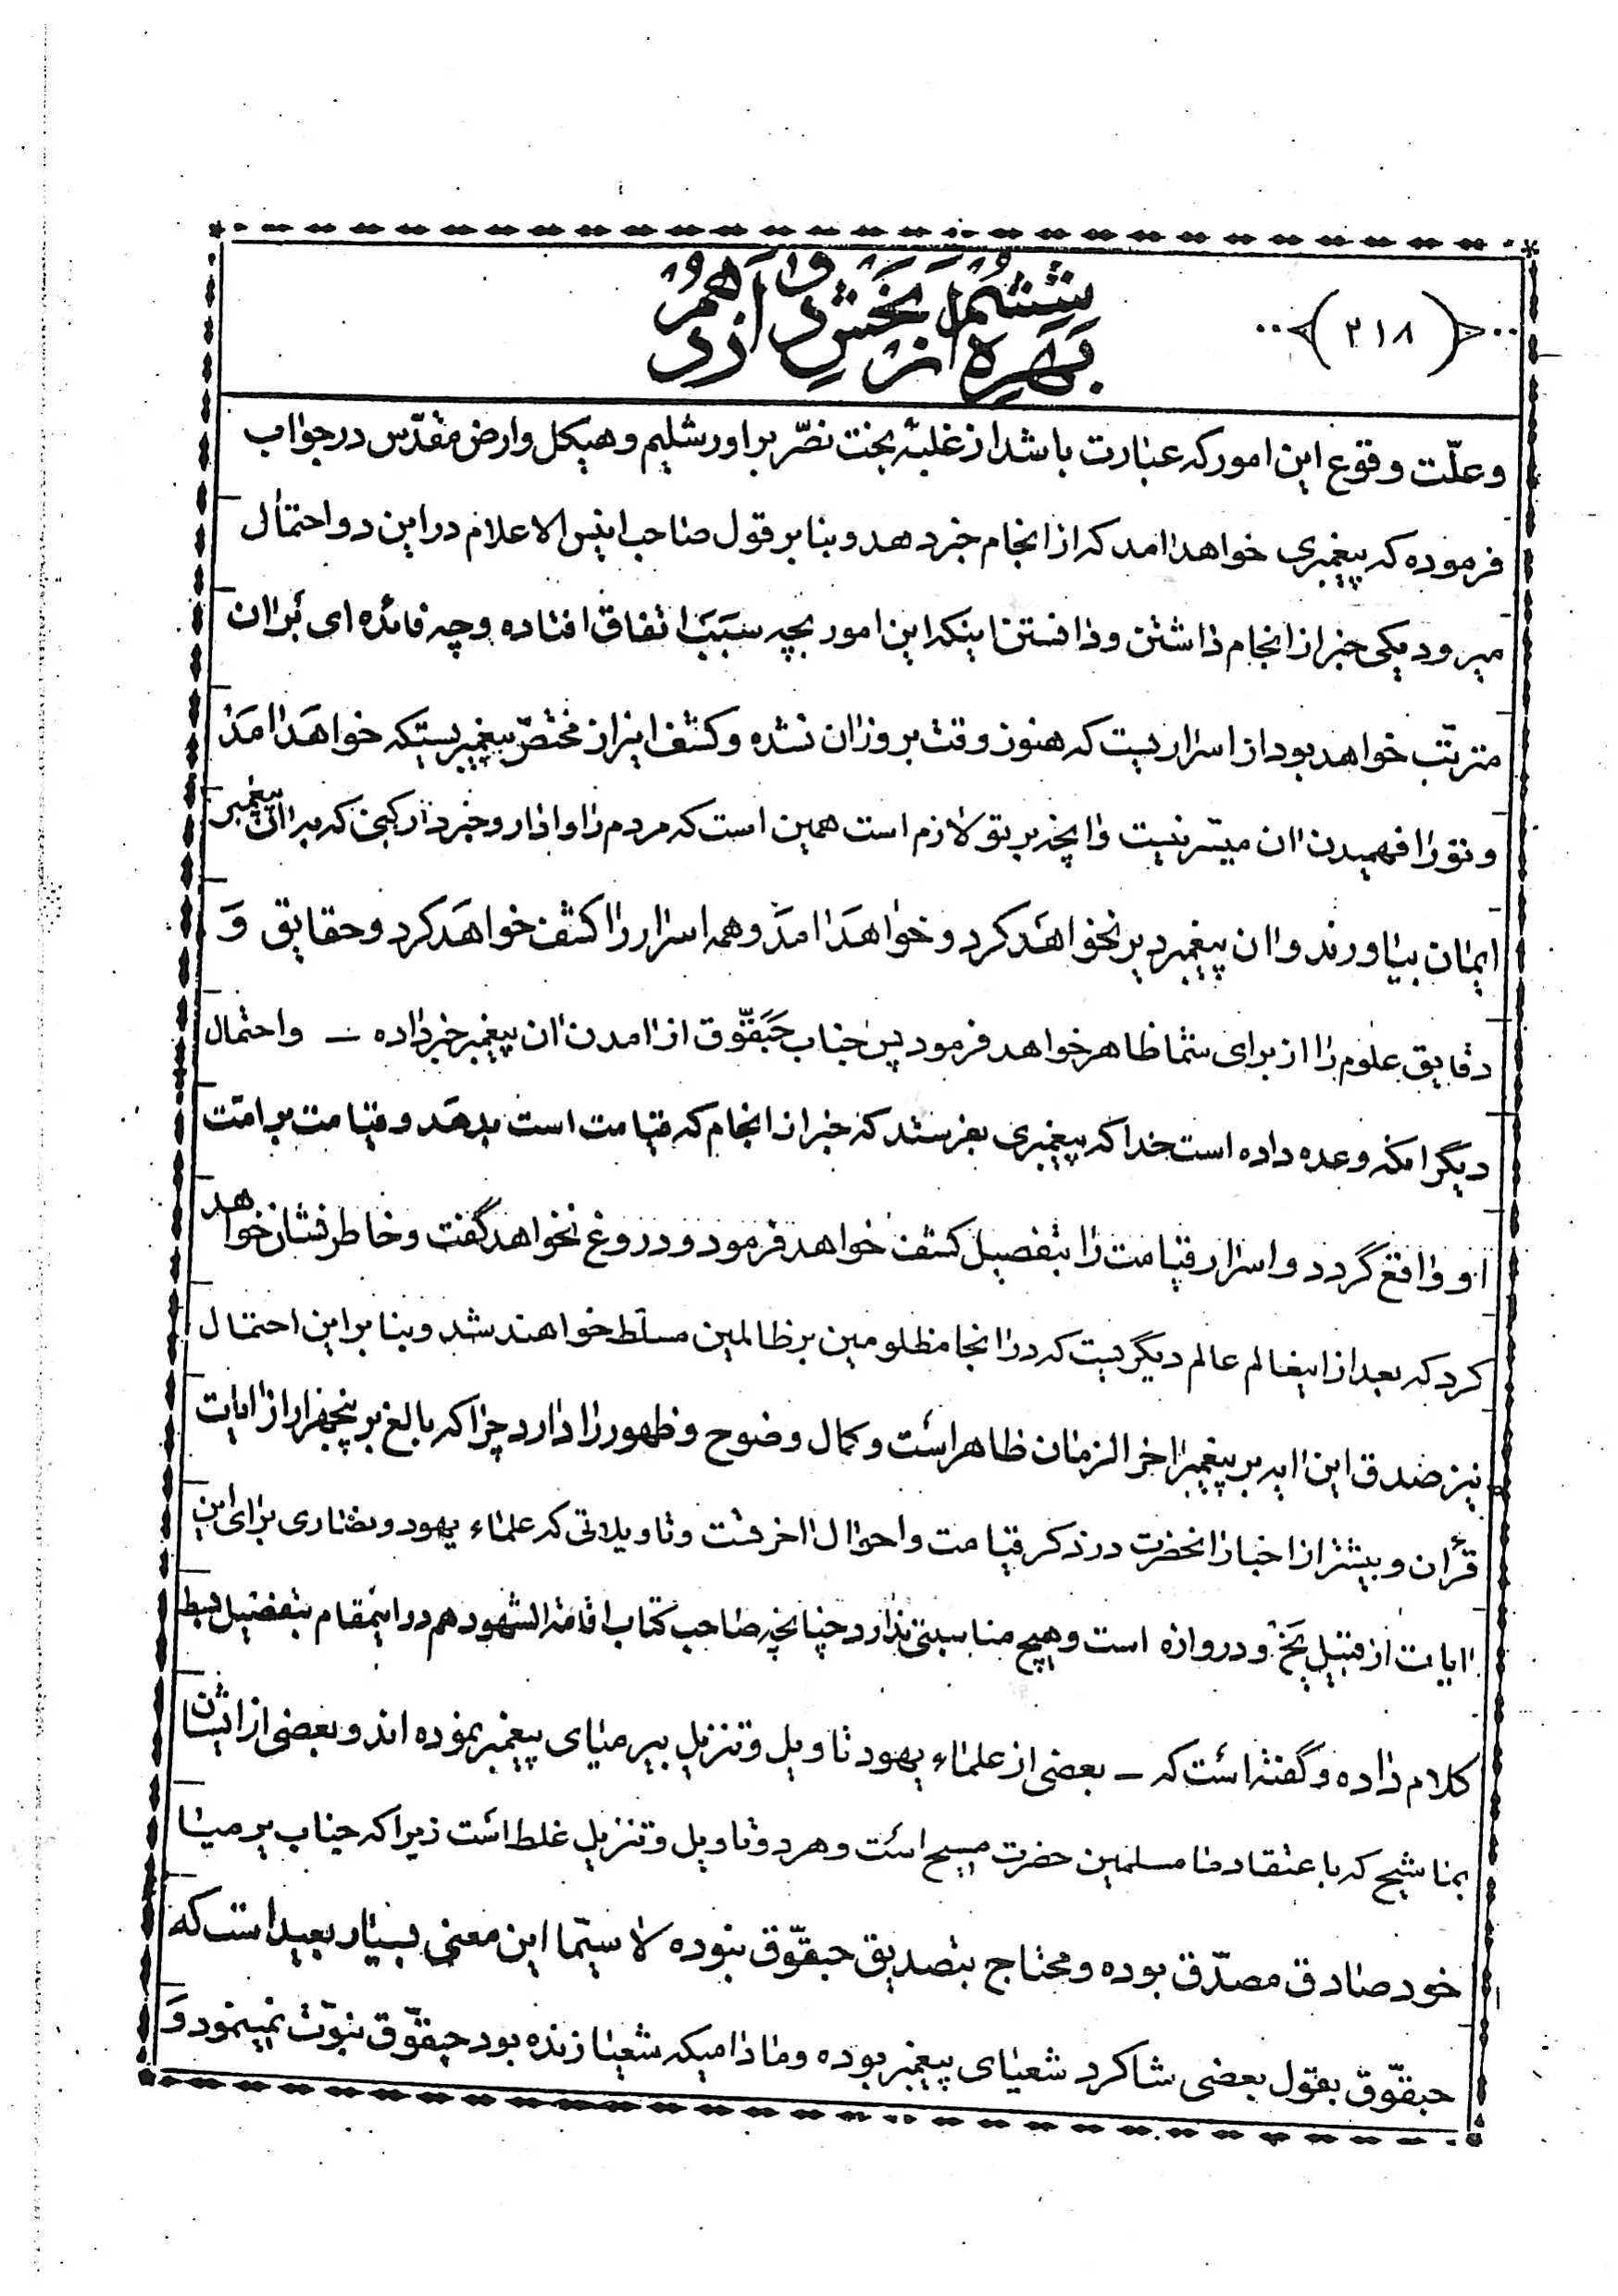 ﴿۲۱۸﴾
بهره ششم از بخش دوازدهم
و علّت وقوع این امور که عبارت باشد از غلبهٔ بخت نصّر بر اورشلیم و هیکل و ارض مقدّس در جواب
فرموده که پیغمبری خواهد امد که از انجام خبر دهد و بنابر قول صاحب انیس الاعلام در این دو احتمال
میرود یکی خبر از انجام داشتن و دانستن اینکه این امور بچه سبب اتفاق افتاده و چه فائده ای بران
مترتّب خواهد بود از اسراریست که هنوز وقت بروز ان نشده و کشف این راز مختصّ پیغمبریستکه خواهد امد
و تو را فهمیدن ان میسّر نیست و انچه بر تو لازم است همین است که مردم را وادار و خبردار کنی که به ان پیغمبر
ایمان بیاورند و ان پیغمبر دیر نخواهد کرد و خواهد امد و همه اسرار را کشف خواهد کرد و حقایق و
دقایق علوم را از برای شما ظاهر خواهد فرمود پس جناب حَبَقّوق از امدن ان پیغمبر خبر داده ـ و احتمال
دیگر انکه وعده داده است خدا که پیغمبری بفرستد که خبر از انجام که قیامت است بدهد و قیامت بر امّت
او واقع گردد و اسرار قیامت را بتفصیل کشف خواهد فرمود و دروغ نخواهد گفت و خاطر نشان خواهد
کرد که بعد از اینعالم عالم دیگریست که در انجا مظلومین بر ظالمین مسلّط خواهند شد و بنابر این احتمال
نیز صدق این ایه بر پیغمبر اخر الزمان ظاهر است و کمال وضوح و ظهور را دارد چرا که بالغ بر پنجهزار از ایات
قرآن و بیشتر از اخبار انحضرت در ذکر قیامت و احوال اخرتست و تاویلاتی که علماء یهود و نصاری برای این
ایات از قبیل یخ و دروازه است و هیچ مناسبتی ندارد چنانچه صاحب کتاب اقامة الشهود هم در اینمقام بتفصیل بسط
کلام داده و گفته است که ـ بعضی از علماء یهود تاویل و تنزیل بیرمیای پیغمبر نموده اند و بعضی از ایشان
بماشیح که باعتقاد ما مسلمین حضرت مسیح است و هر دو تاویل و تنزیل غلط است زیرا که جناب یرمیا
خود صادق مصدّق بوده و محتاج بتصدیق حبقّوق نبوده لا سیّما این معنی بسیار بعید است که
حبقّوق بقول بعضی شاکرد شعیای پیغمبر بوده و مادامیکه شعیا زنده بود حبقّوق نبوّت نمینمود و